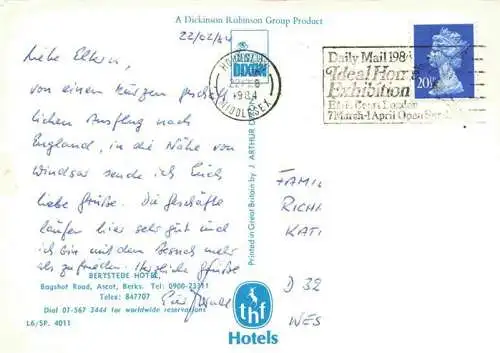 A Dickinson Robinson Group Product
22/02/84
Liebe Eltern,
von einem kurzen geschäft-
lichen Ausflug nach
England, in die Nähe von
Windsor sende ich Euch
liebe Grüße. Die Geschäfte
laufen hier sehr gut und
ich bin mit dem Besuch mehr
als zufrieden. Herzliche Grüße
BERTSTEDE HOTEL,
Bagshot Road, Ascot, Berks. Tel: 0900-73311
Telex: 847707
Dial 07-567 3444 for worldwide reservations
L6/SP. 4011
DIXON
HOUNSLOW
1984
MIDDLESEX
Printed in Great Britain by J. ARTHUR
Daily Mail 198
Ideal Home
Exhibition
Earls Court London
7 March-1 April Open
20½P
FAMIL
RICHA
KATI
D 32
WES
thf
Hotels